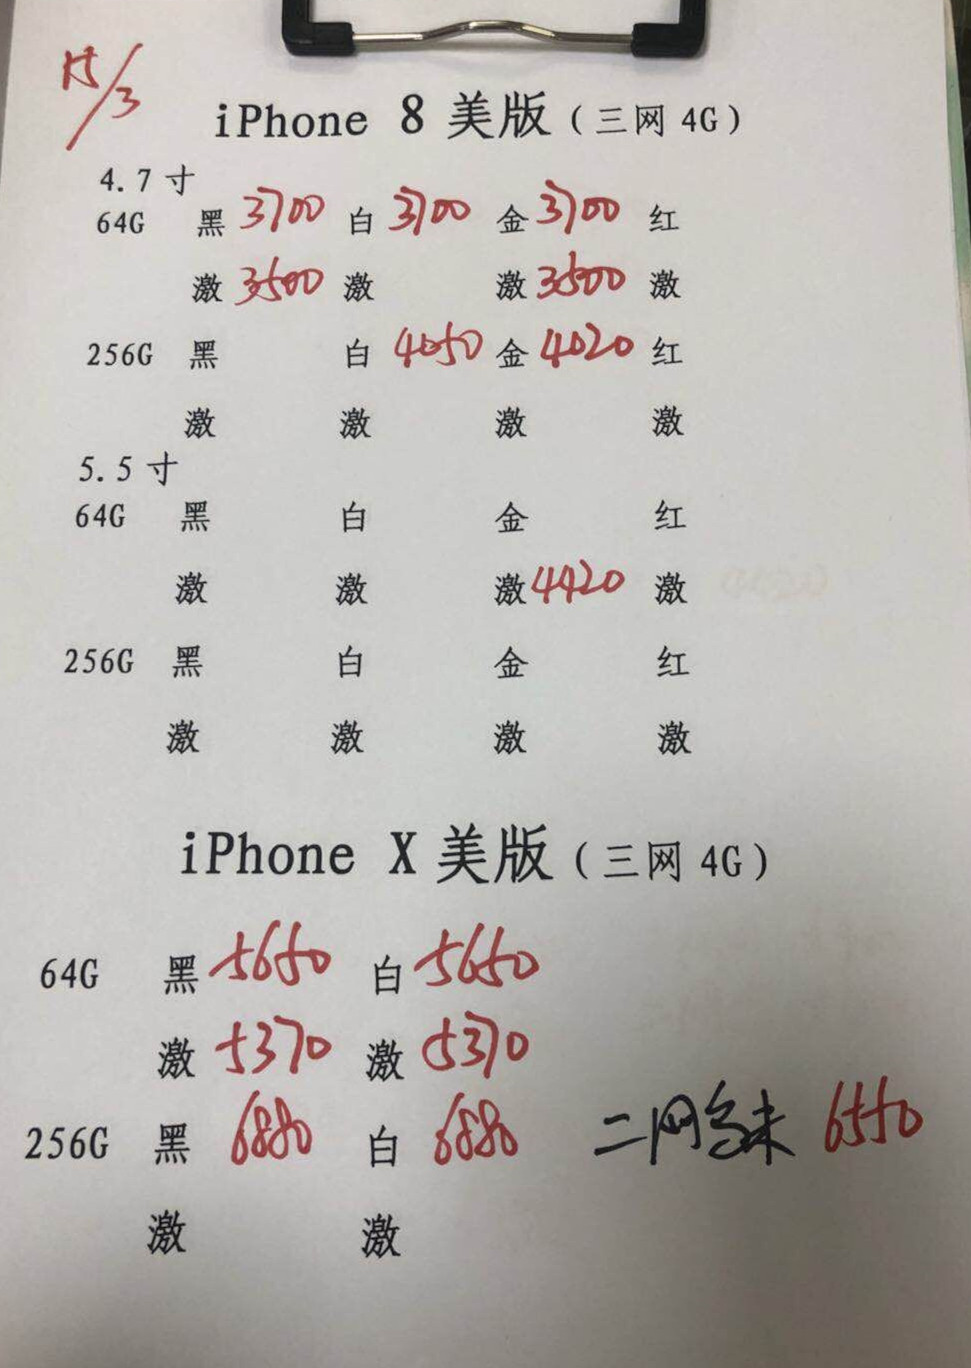 15/3
iPhone 8 美版（三网 4G）
4.7 寸
64G 黑 3700 白 3700 金 3700 红
激 3500 激 激 3500 激
256G 黑 白 4050 金 4020 红
激 激 激 激
5.5 寸
64G 黑 白 金 红
激 激 激 4420 激
256G 黑 白 金 红
激 激 激 激
iPhone X 美版（三网 4G）
64G 黑 5650 白 5650
激 5370 激 5370
256G 黑 6880 白 6880 二网 未 6550
激 激